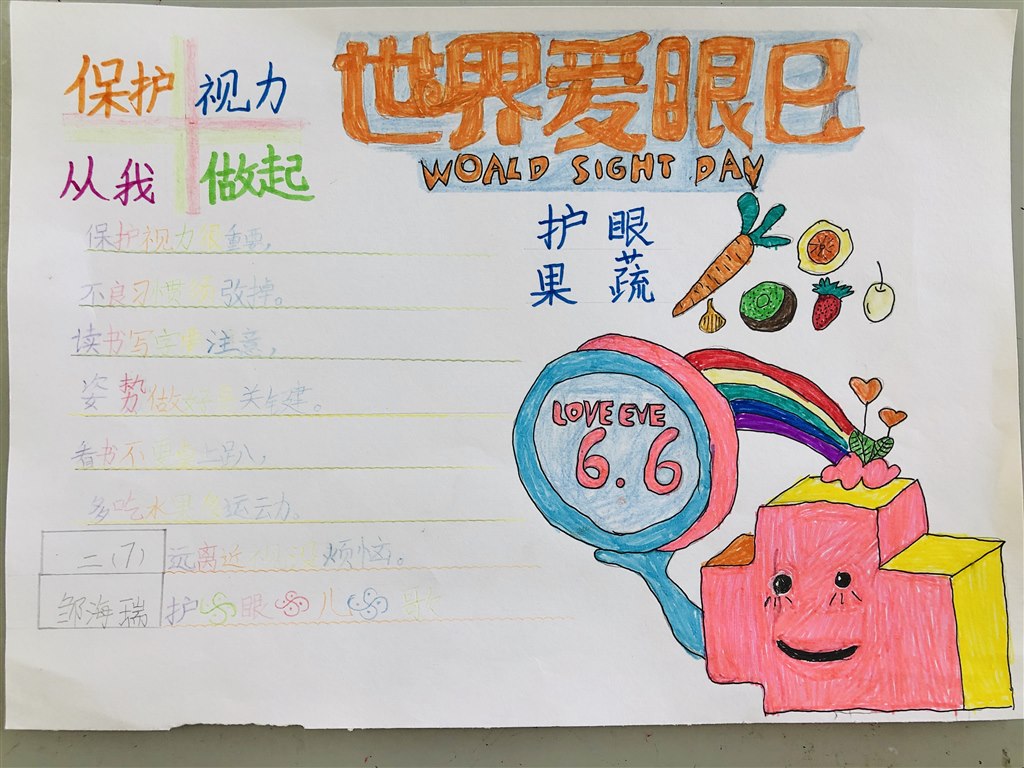 保护 视力
从我 做起
世界爱眼日
WOALD SIGHT DAY
护眼
果蔬
LOVE EYE
6.6
保护视力很重要，
不良习惯 改掉。
读书写字 注意，
姿势做好 关键。
看书不 上趴，
多吃水果多运动。
远离近 烦恼。
护眼儿歌
二（7）
邹海瑞